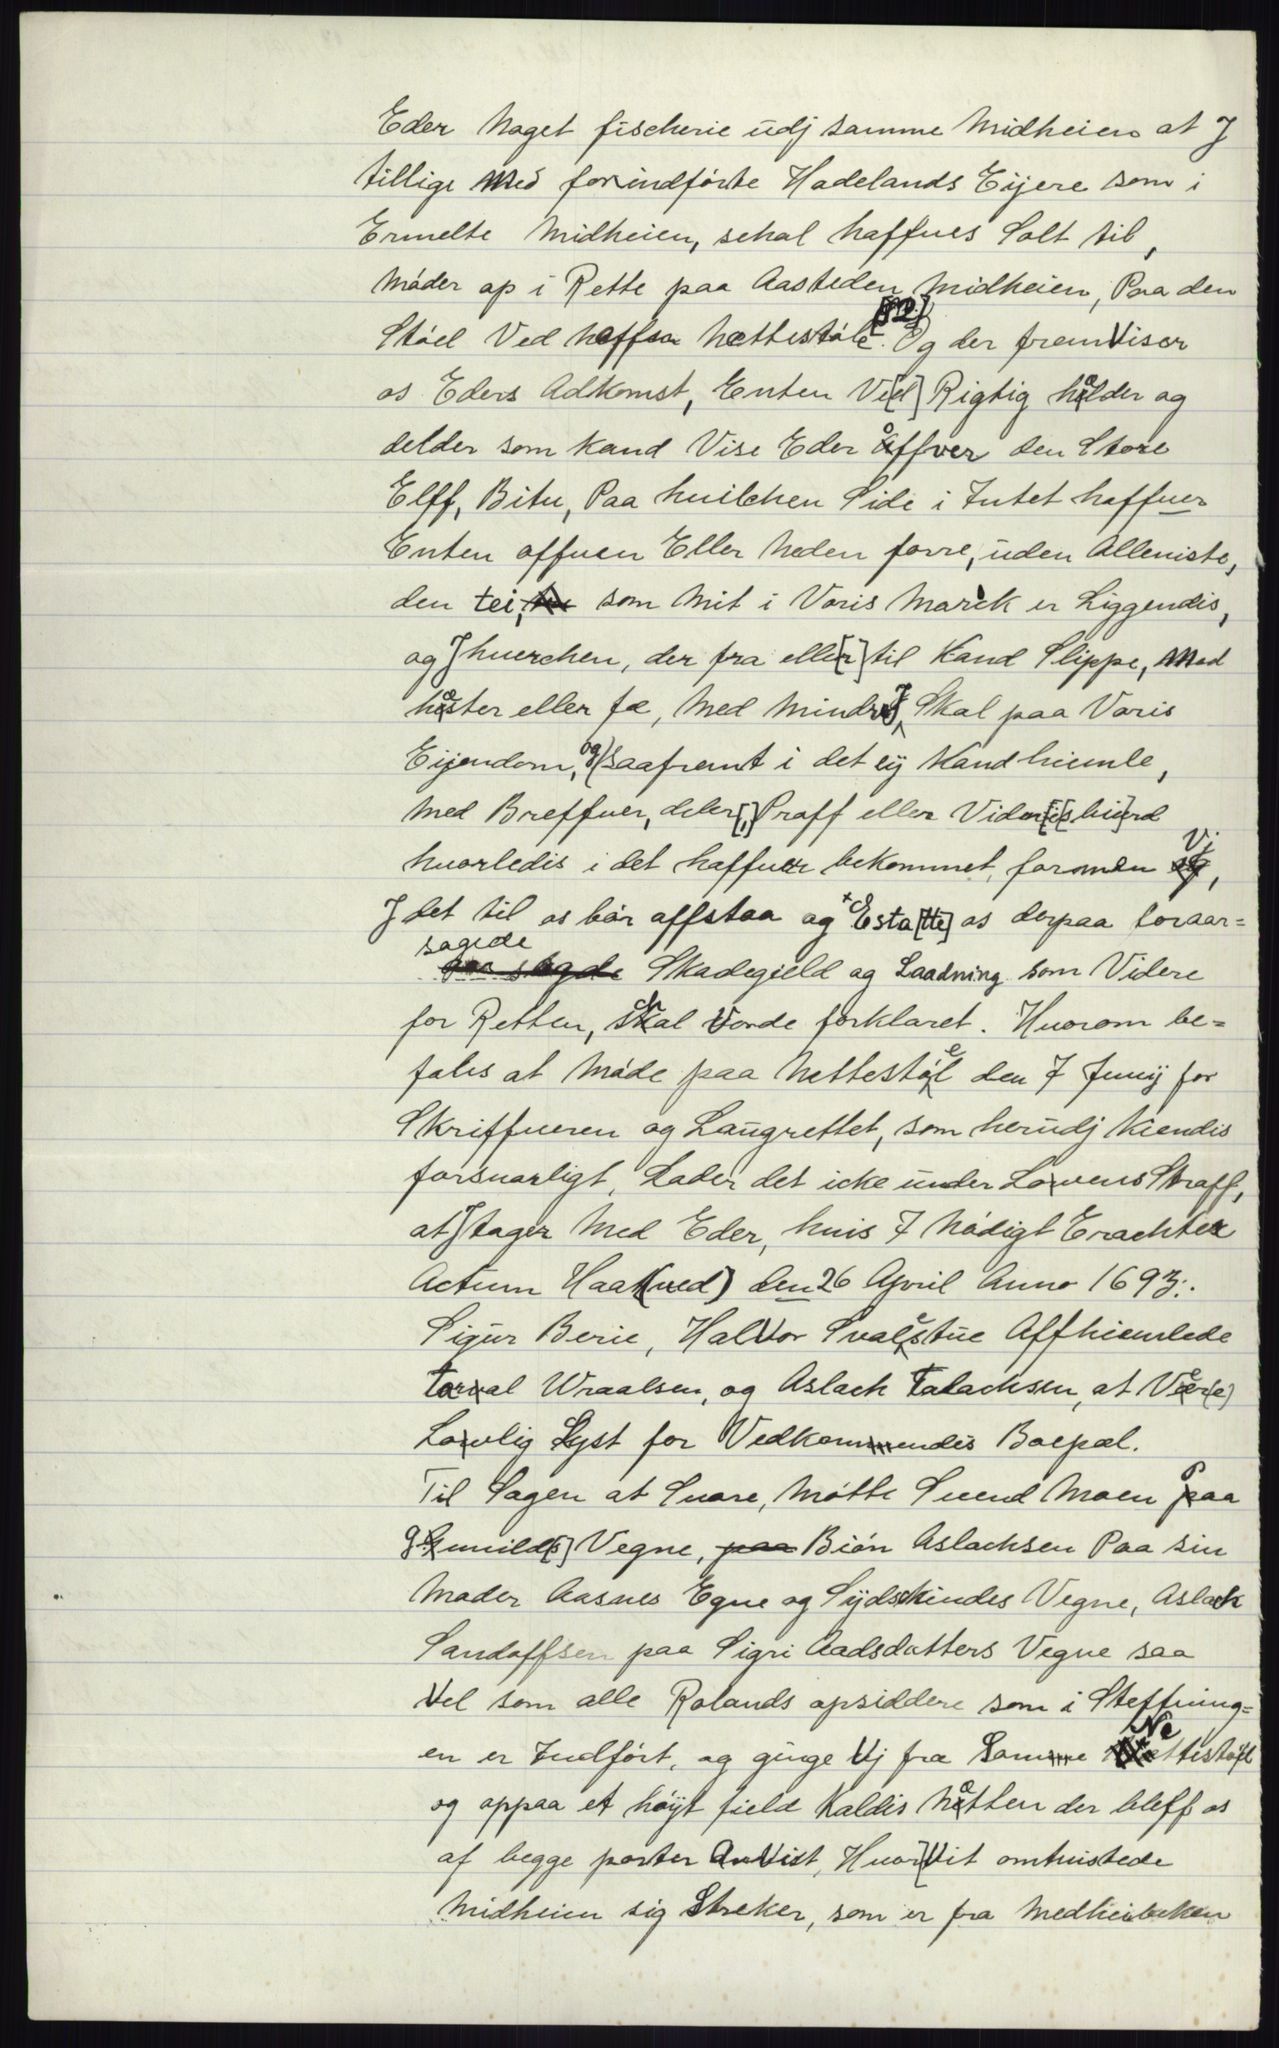 Eder Noget fischerie udj samme Midheien at J
tillige Med forindførte Hadelands Eijere som i
Ermelte Midheien, schal haffues Solt til,
Møder op i Rette paa Aasteden Midheien, Paa den
Støel Ved Neffsn Nettestøle [82] Og der fremViser
os Eders Adkomst, Enten Ve[d] Rigtig holder og
delder som kand Vise Eder offver den Store
Elff, Bitu, Paa huilchen Side i Intet haffuer
Enten offuen Eller Neden forre, uden Alleniste,
den tei, som Mit i Voris March er Liggendis,
og J huerchen, der fra elle[r] til Kand Slippe, Med
hester eller fæ, Med Mindre J Skal paa Voris
Eijendom, og saafremt i det eij Kand hiemle,
Med Breffuer, deler[,] Proff eller Viden[is]bi[u]rd
huorledis i det haffuer bekommet, formen Vj,
J det til os bør affstaa og Esta[tte] os derpaa foraar=
sagede Skadegield og Laadning som Videre
for Retten, schal Vorde forklaret. Huorom be=
fales at Møde paa Nettestøel den 7 Junij for
Skriffueren og Laugrettet, som herudj Kiendis
forsuarligt, Lader det icke under Lovens Straff,
at J tager Med Eder, huis J Nødigt Erachter
Actum Haa(ved) den 26 April Anno 1693:.
Sigur Berie, HalVor Svalestue Affhiemlede
Torval Wraalsen, og Aslach Talachsen, at Vær(e)
Lovlig Lyst for Vedkommendis Boepæl.
Til Sagen at Suare, Møtte Suend Moen Paa
gunild[s] Vegne, Biøn Aslachsen Paa sin
Moder Aasnes Egne og Sydschindes Vegne, Aslach
Sandoffsen paa Sigri Aadsdatters Vegne saa
Vel som alle Rolands opsiddere som i Steffning=
en er Indført, og ginge Vj fra Samme Nettistøel
og oppaa et høyt field Kaldis Notten der bleff os
af begge parter AnVist, Huor Vit omtuistede
Midheien sig Streker, som er fra Medheibeken